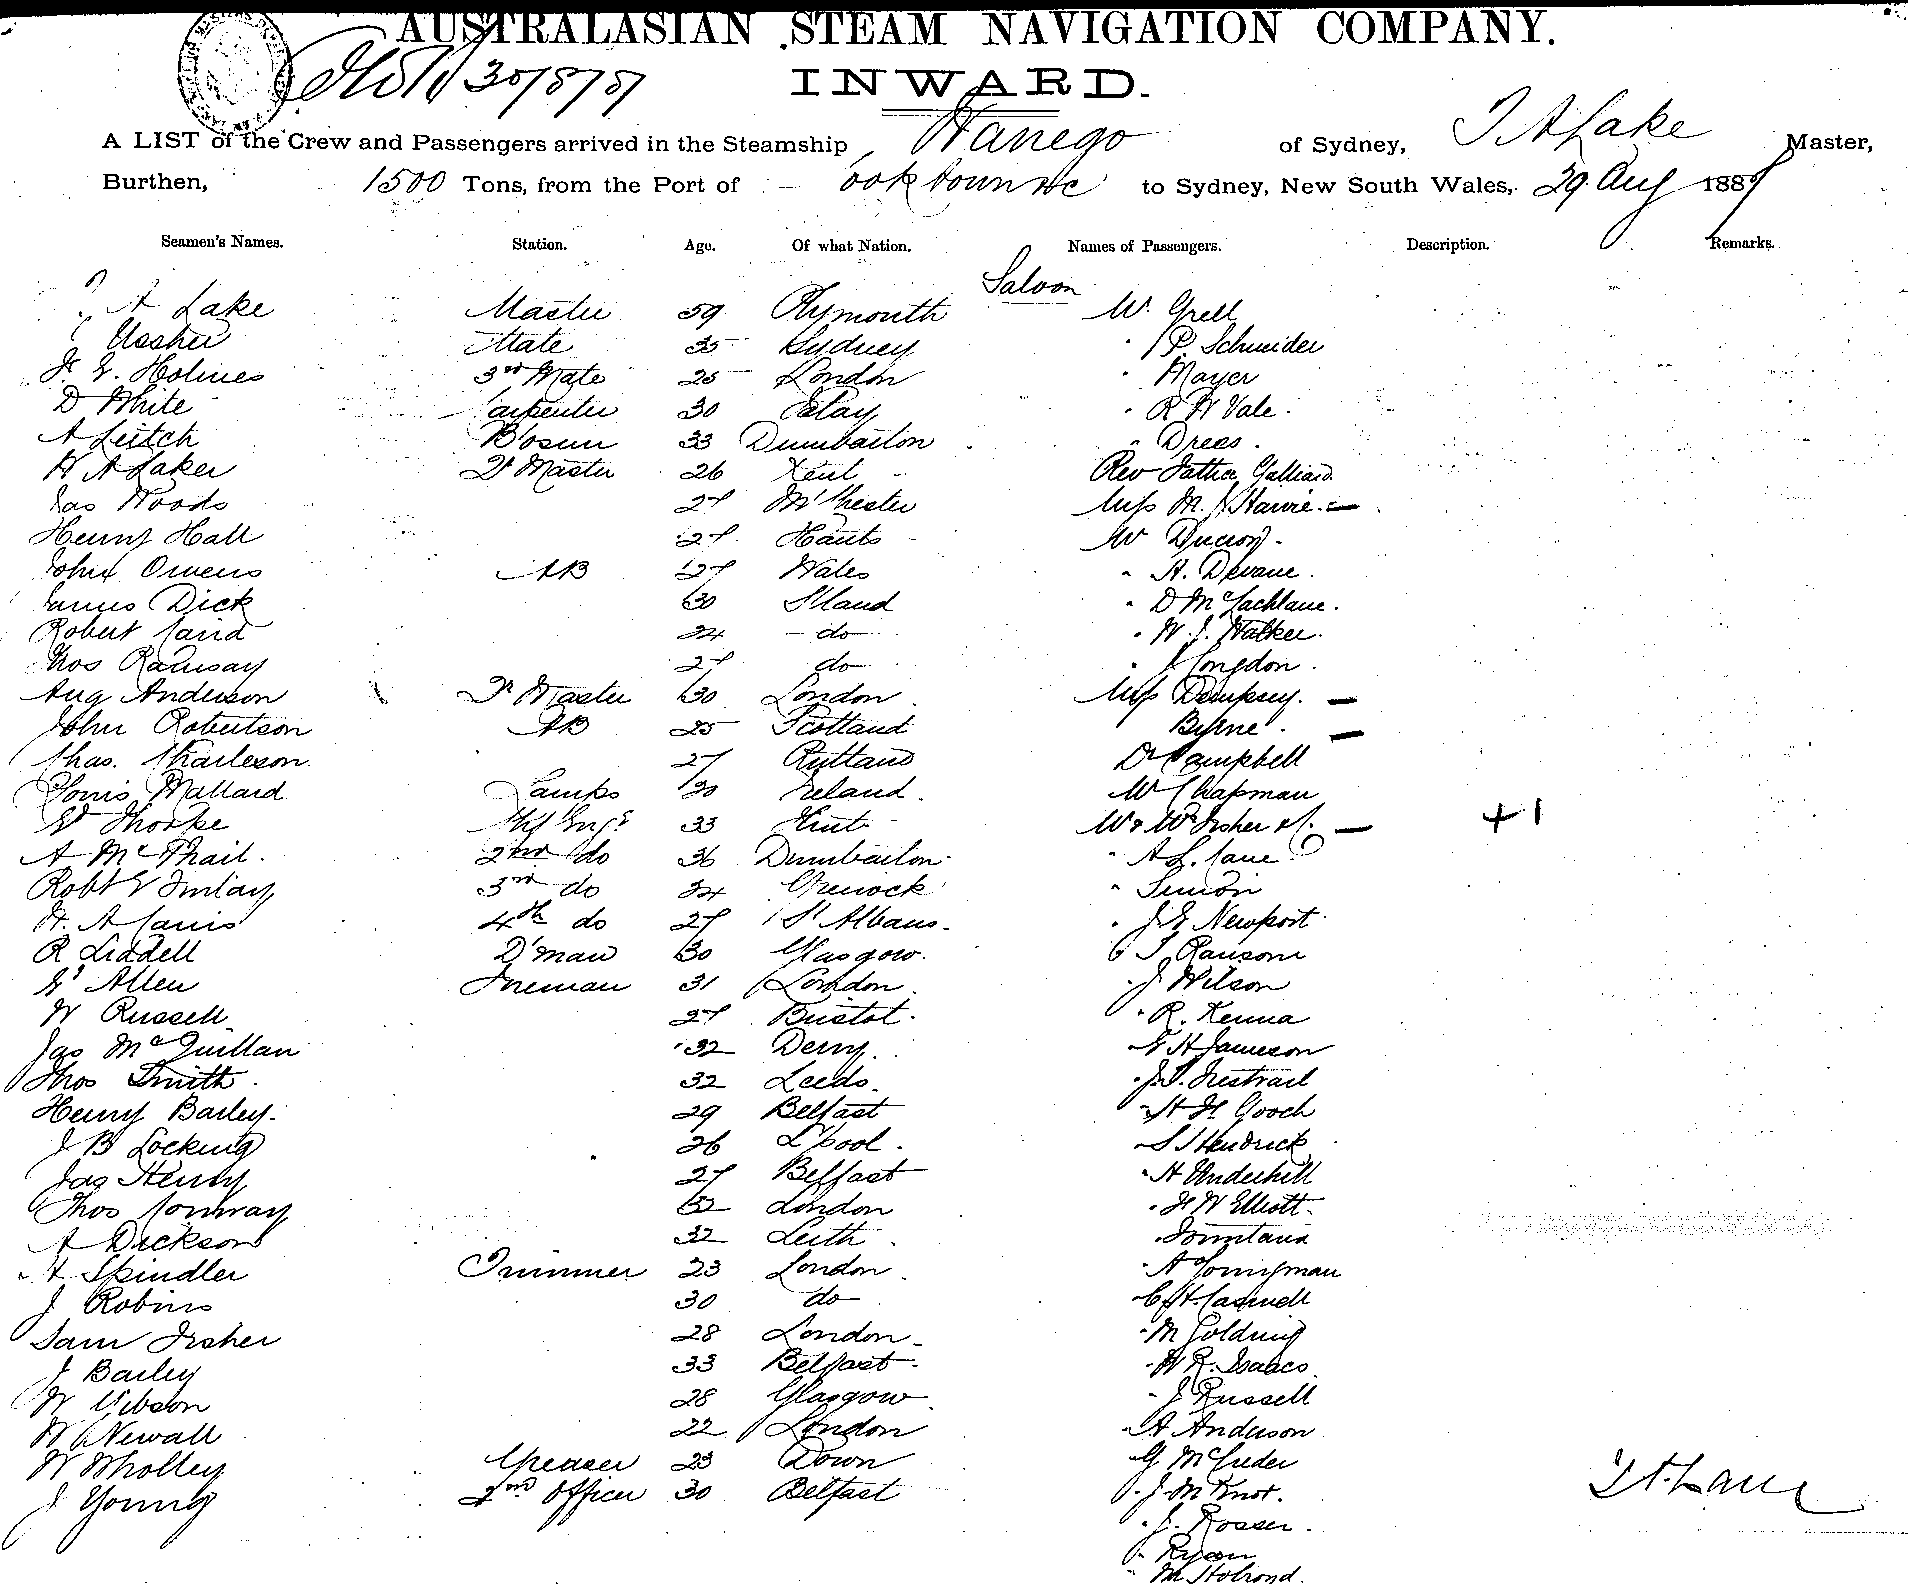 AUSTRALASIAN STEAM NAVIGATION COMPANY.
30/8/87
INWARD.
A LIST of the Crew and Passengers arrived in the Steamship Warrego of Sydney, T A Lake Master,
Burthen, 1500 Tons, from the Port of ooktown &c to Sydney, New South Wales, 29 Aug 1887
Seamen's Names. Station. Age. Of what Nation. Names of Passengers. Description. Remarks.
Saloon
A Lake Master 59 Plymouth Mr Grell
Ussher Mate 35 Sydney " P. Schneider
Holmes 3rd Mate 25 London " Mayer
D White Carpenter 30 " R W Vale.
A Leitch B'osun 33 Dumbarton " Drees.
W A Laker Qr Master 26 Kent Rev Father Galliard
Jas Woods 27 M'Chester Miss M. J Harrie. —
Henry Hall 27 Hants Mr
John Owens AB 27 Wales " A. Devane.
James Dick 30 " D McLachlane.
Robert Caird 24 do " W. J. Walker.
Thos Ramsay 27 do " J Congdon.
Aug Anderson Qr Master 30 London Miss Dempsey. —
John Robertson AB 25 Scotland Byrne. —
Chas. Charleson 27 Dr Campbell
Mallard Lamps 30 Ireland. Mr Chapman
W Thorpe Chf Engr 33 Mr & Mrs Fisher & C. — + 1
A McPhail. 2nd do 36 Dumbarton " A L. Cane
Robt Finlay 3rd do 24 Greenock " Simon
H. A Janis 4th do 27 St Albans. " J E Newport.
R Liddell D'man 30 Glasgow. " T Ransom
Allen Fireman 31 London " J Wilson
W Russell 27 Bristol. " R. Kenna
Jas McQuillan 32 Derry. " E H Jameson
Thos Smith. 32 Leeds. " J. Trestrail
Henry Bailey. 29 Belfast " H H Gooch
J B Locking 26 L'pool. " S J Hendrick
Jas Henry 27 Belfast " H Underhill
Thos Conway 32 London " H W Elliott.
A Dickson 32 Leith " Fountain
H Spindler Trimmer 23 London " A Youngman
J Robins 30 do " C H. Caswell
Sam Fisher 28 London " M Golding
J Bailey 33 Belfast " W R. Isaacs
W Gibson 28 Glasgow " J Russell
W Newall 22 London " A Anderson
W Wholley Greaser 23 Down " G McCuder
J Young 2nd Officer 30 Belfast " J. McKnot.
" J. Rosser.
" Ryan
" M Holrond.